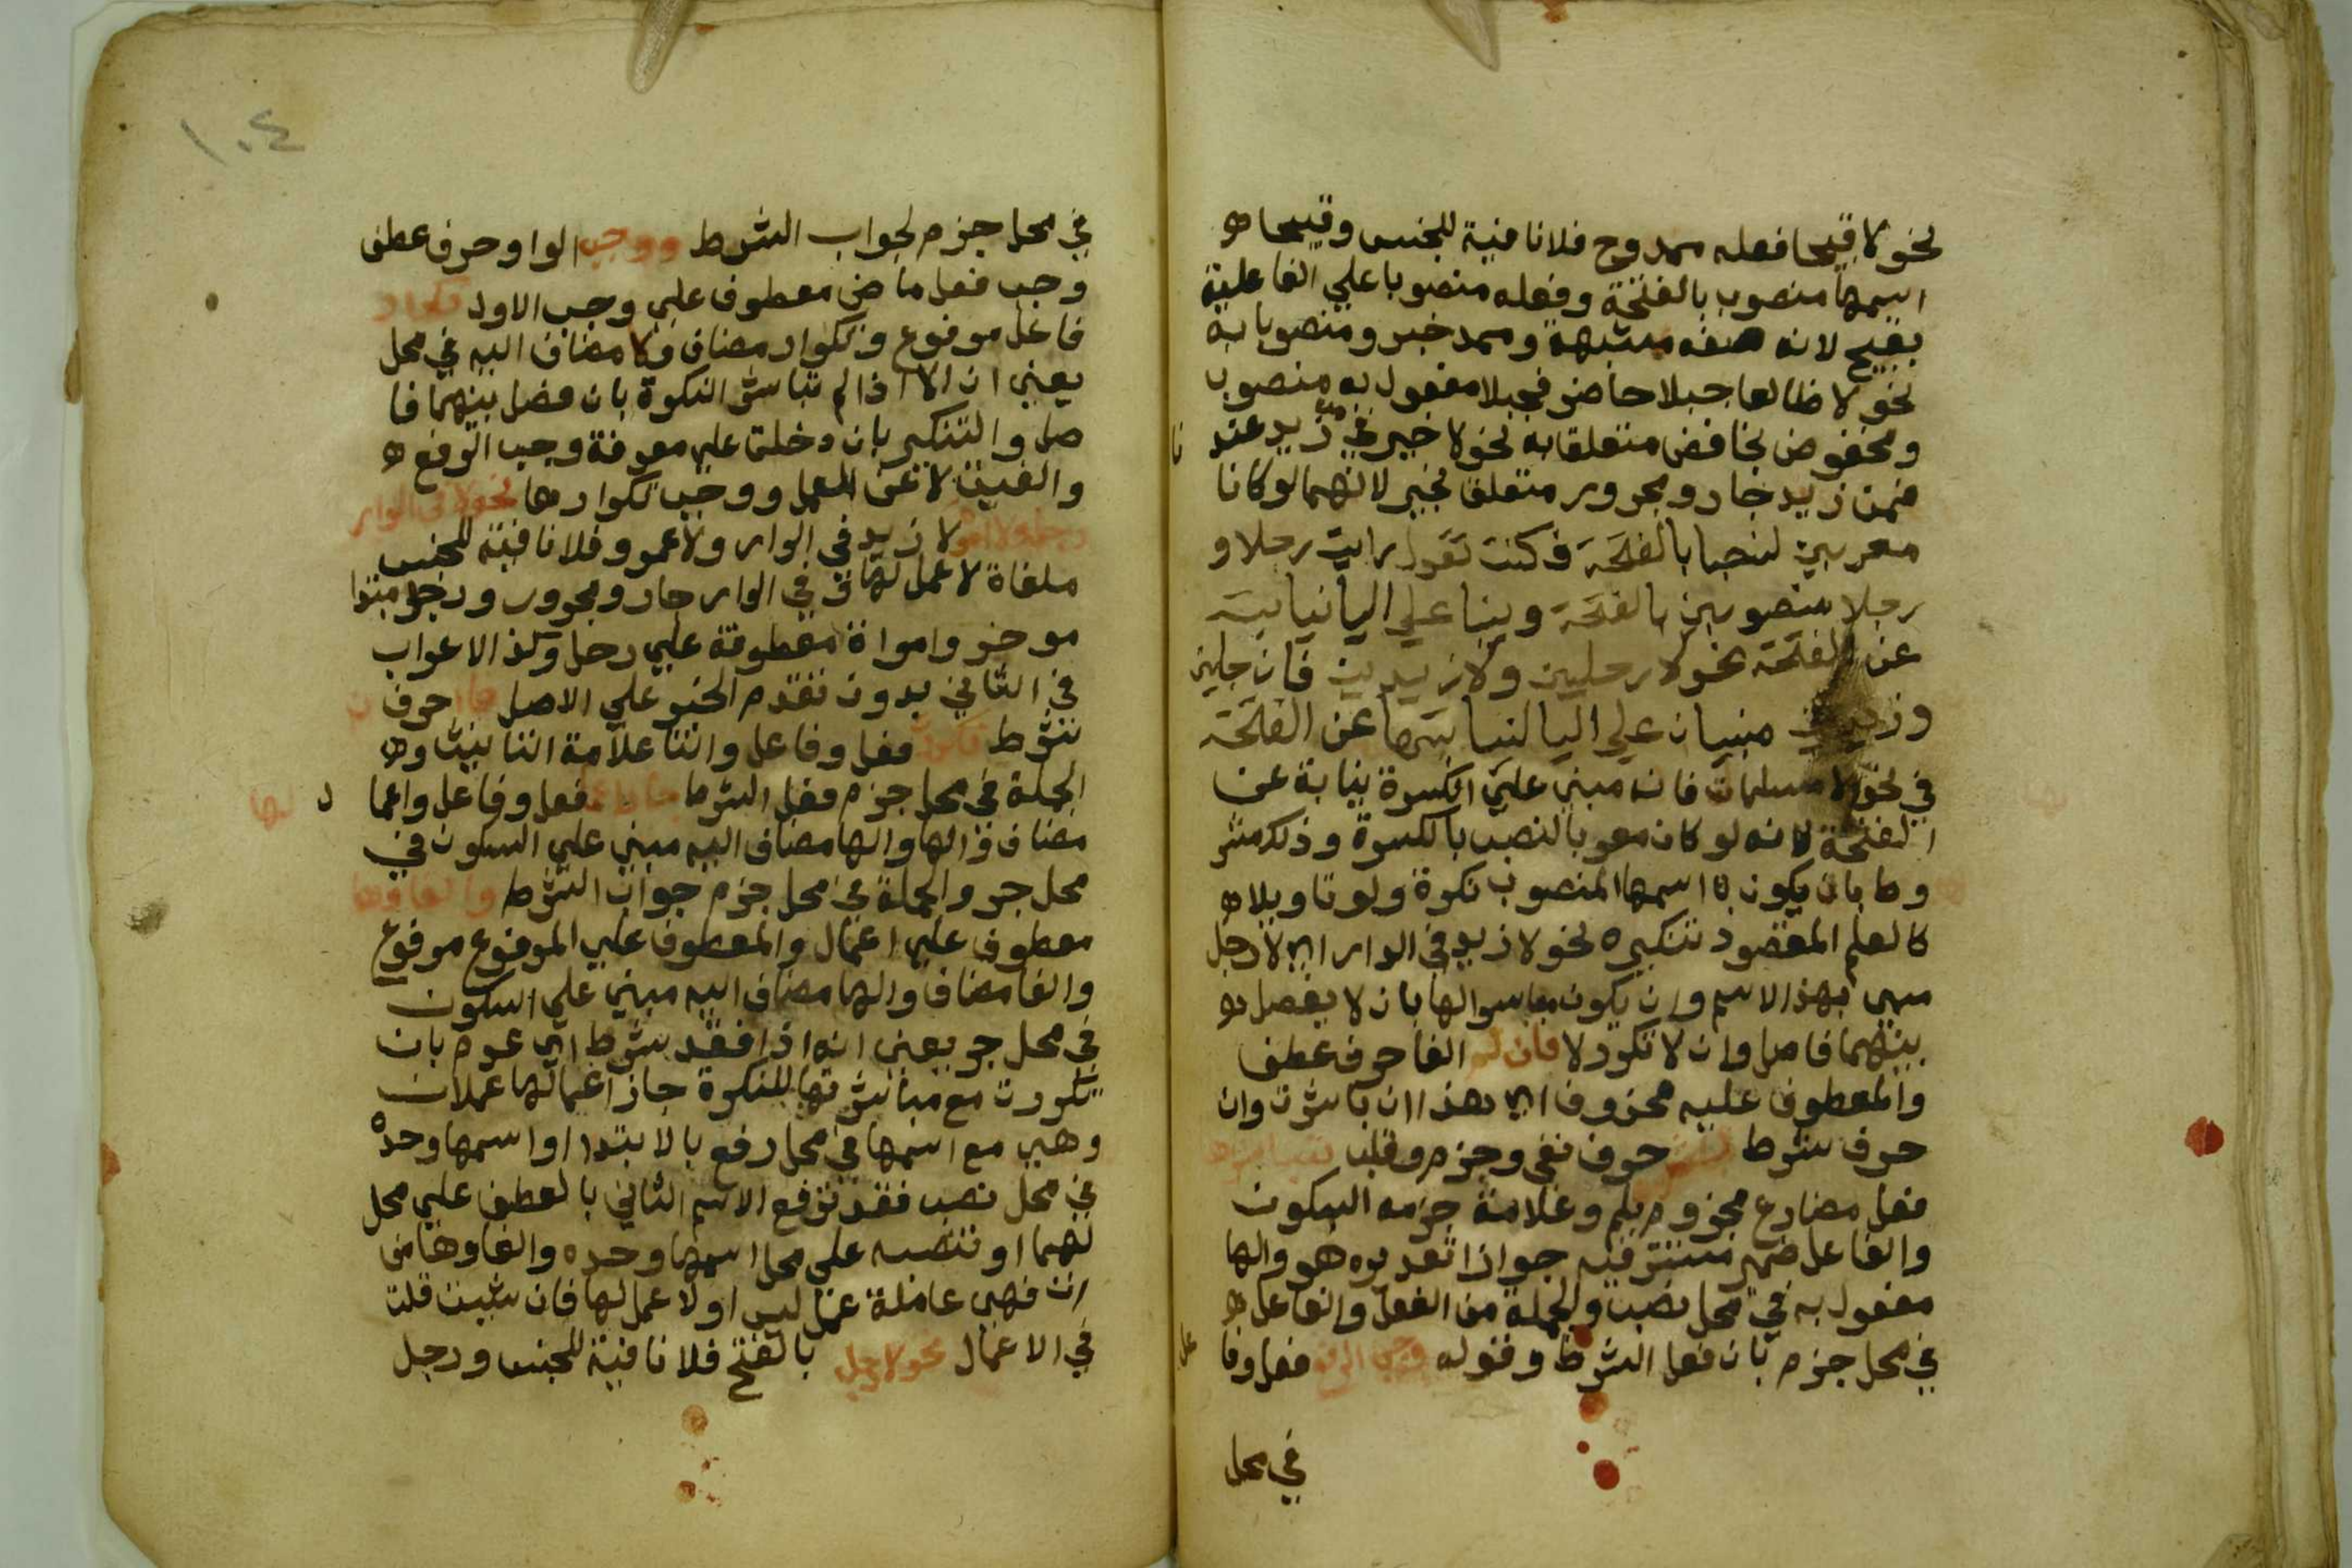 نحو لا قبيحا فعله ممدوح فلا نافية للجنس وقبيحا
اسمها منصوب بالفتحة وفعله منصوبا علي الفاعلية
بقبيح لانه صفة مشبهة وممد خبر ومنصوبا به
نحو لا طالعا جبلا حاضر فجبلا مفعول به منصوب
ومخفوض بخافض متعلقا به نحو لا خير من زيد عند
فمن زيد جار ومجرور متعلق بخير لانهما لو كانا
معربين لنصبا بالفتحة فكنت تقول رايت رجلا و
رجلا منصوبين بالفتحة وبنيا علي اليا نيابة
عن الفتحة نحو لا رجلين ولا زيدين فان رجلين
وزيدين مبنيان علي اليا لنيابتها عن الفتحة
في نحو لا مسلمات فانه مبني علي الكسرة نيابة عن
الفتحة لانه لو كان معربا لنصب بالكسرة وذلك مشر
وط بان يكون اسمها المنصوب نكرة ولو تاويلا
كالعلم المقصود تنكيره نحو لا زيد في الدار اي لا رجل
مسمى بهذا الاسم وان يكون مباشرا لها بان لا يفصل
بينهما فاصل وان لا تكرر لا فان لم الفا حرف عطف
والمعطوف عليه محذوف اي هذا ان باشرت وان
حرف شرط حرف نفي وجزم وقلب
فعل مضارع مجزوم بلم وعلامة جزمه السكون
والفاعل ضمير مستتر فيه جوازا تقديره هو والها
مفعول به في محل نصب والجملة من الفعل والفاعل
في محل جزم بان فعل الشرط وقوله وجب الرفع فعل وفا
عل
في محل
١٠٤
في محل جزم لجواب الشرط ووجب الواو حرف عطف
وجب فعل ماض معطوف علي وجب الاول تكرار
فاعل مرفوع وتكرار مضاف ولا مضاف اليه في محل
يعني ان لا اذا لم تباشر النكرة بان فصل بينهما فا
صل والتنكير بان دخلت علي معرفة وجب الرفع
والغيت لا عن العمل ووجب تكرارها نحو لا في الدار
رجل ولا امرأة لا زيد في الدار ولا عمرو فلا نافية للجنس
ملغاة لا عمل لها وفي الدار جار ومجرور ورجل مبتدا
موخر وامراة معطوفة علي رجل وكذا الاعراب
في الثاني بدون تقدم الخبر علي الاصل فان حرف
شرط تكررت فعل وفاعل والتا علامة التانيث و
الجملة في محل جزم فعل الشرط جاز اعمالها فعل وفاعل واعما
ل مضاف والها والها مضاف اليه مبني علي السكون في
محل جر والجملة في محل جزم جواب الشرط والغاوها
معطوف علي اعمال والمعطوف علي المرفوع مرفوع
والغا مضاف والها مضاف اليه مبني علي السكون
في محل جر يعني انه اذا فقد شرط اي عدم بان
تكررت مع مباشرتها للنكرة جاز اعمالها عمل ان
وهي مع اسمها في محل رفع بالابتدا او اسمها وحده
في محل نصب فقد ترفع الاسم الثاني بالعطف علي محل
لهما او تنصبه علي محل اسمها وحده والغاوها من
ان فهي عاملة عمل ليس او لا عمل لها فان شيت قلت
في الاعمال نحو لا رجل بالفتح فلا نافية للجنس ورجل